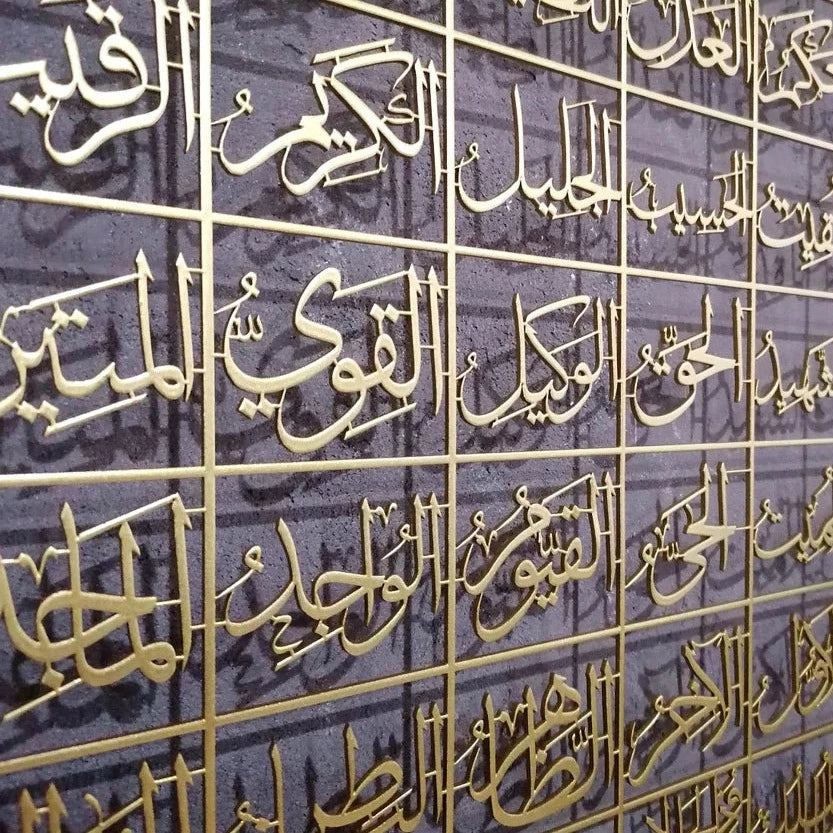 العدل
المقيت الحسيب الجليل الكريم الرقيب
الشهيد الحق الوكيل القوي المتين
المميت الحي القيوم الواجد الماجد
الأول الآخر الظاهر الباطن